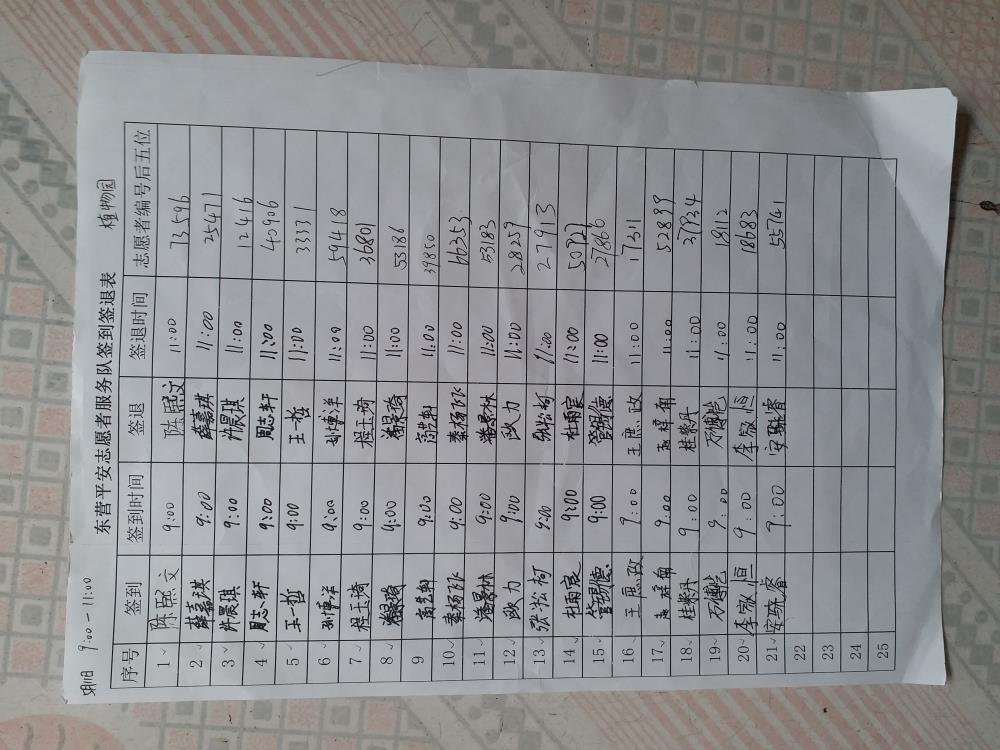 9:00-11:00
东营平安志愿者服务队签到签退表 植物园
序号 签到 签到时间 签退 签退时间 志愿者编号后五位
1 陈熙文 9:00 陈熙文 11:00 73596
2 薛嘉琪 9:00 薛嘉琪 11:00 25471
3 许晨琪 9:00 许晨琪 11:00 12416
4 周志轩 9:00 周志轩 11:00 40906
5 王哲 9:00 王哲 11:00 3331
6 孙博洋 9:00 孙博洋 11:00 59418
7 程玉涛 9:00 程玉涛 11:00 36801
8 9:00 11:00 53186
9 9:00 11:00 39850
10 秦杨飞 9:00 秦杨飞 11:00 66353
11 潘景林 9:00 潘景林 11:00 53183
12 欧力 9:00 欧力 11:00 28259
13 张松柯 9:00 张松柯 11:00 27913
14 杜雨宸 9:00 杜雨宸 11:00 50727
15 管瑞德 9:00 管瑞德 11:00 27866
16 王照政 9:00 王照政 11:00 17311
17 9:00 11:00 52899
18 桂梦丹 9:00 桂梦丹 11:00 37934
19 万博艺 9:00 11:00 18112
20 李淑恒 9:00 李淑恒 11:00 18683
21 安琬睿 9:00 安琬睿 11:00 55741
22
23
24
25